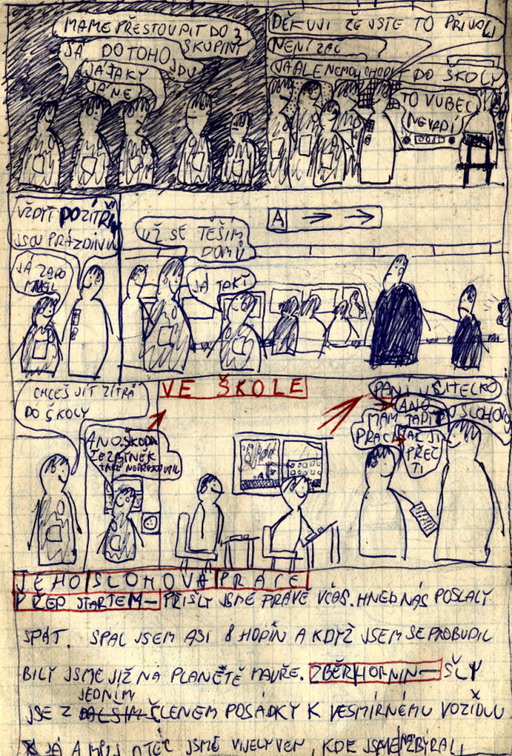 MAME PŘESTOUPIT DO 3
SKUPIN
JÁ DO TOHO JDU
JÁ TAKY
JÁ NE
DĚKUJI ŽE JSTE TO
NENÍ ZAČ
JÁ ALE NEMOHU CHODIT DO ŠKOLY
TO VŮBEC
NEVADÍ
VŽDYŤ POZÍTŘÍ
JSOU PRÁZDNINY
JÁ ZAPO
UŽ SE TĚŠÍM
DOMŮ
JÁ TAKY
A
CHCEŠ JÍT ZÍTRA
DO ŠKOLY
ANO ŠKODA
ŽE ZBINEK
TAKÉ
VE ŠKOLE
PANÍ UČITELKO
MÁM
PRÁCI
ANO
TADY
SLOHOVOU
TAK JI
PŘEČ
TI
JEHO SLOHOVÁ PRÁCE
PŘED STARTEM- PŘIŠLY JSME PRÁVĚ VČAS. HNED NÁS POSLALY
SPÁT. SPAL JSEM ASI 8 HODIN A KDYŽ JSEM SE PROBUDIL
BILY JSME JIŽ NA PLANETĚ MAUŘE. ZBĚR HORNIN- ŠLY
JEDNÍM
JSE Z ČLENEM POSÁDKY K VESMÍRNÉMU VOZIDLU
JÁ A MŮJ OTEC JSME VIJELY VEN, KDE JSME NAZBÝRALI